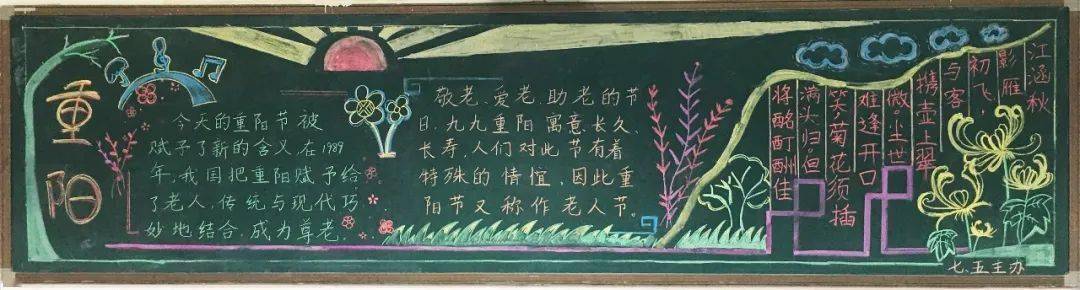 重阳
今天的重阳节被
赋予了新的含义,在1989
年,我国把重阳赋予给
了老人,传统与现代巧
妙地结合,成为尊老、
敬老、爱老、助老的节
日,九九重阳寓意长久、
长寿,人们对此节有着
特殊的情,因此重
阳节又称作老人节。
江涵秋
影雁
初飞,
与客
携壶上翠
微。尘世
难逢开口
笑,菊花须插
满头归。但
将酩酊酬佳
七.五主办